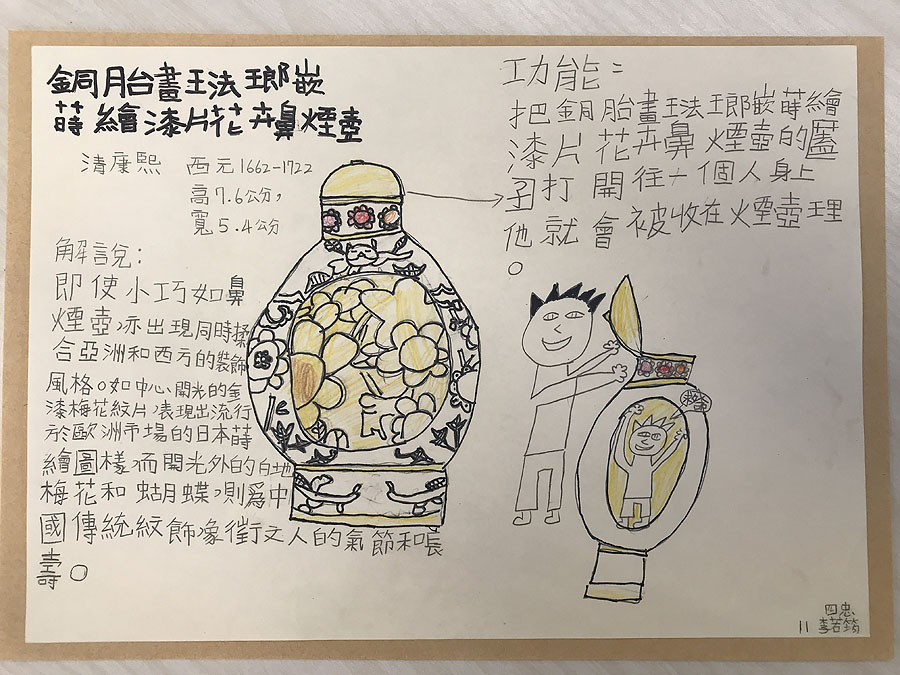 銅胎畫琺瑯嵌
蒔繪漆片花卉鼻煙壺
清康熙 西元1662-1722
高7.6公分,
寬5.4公分
解說:
即使小巧如鼻
煙壺,亦出現同時揉
合亞洲和西方的裝飾
風格。如中心開光的金
漆梅花紋片,表現出流行
於歐洲市場的日本蒔
繪圖樣,而開光外的白地
梅花和蝴蝶,則爲中
國傳統紋飾象徵文人的氣節和長
壽。
功能:
把銅胎畫琺瑯嵌蒔繪
漆片花卉鼻煙壺的蓋
子打開往一個人身上
他就會被收在煙壺理
。
四忠
11 李若筠